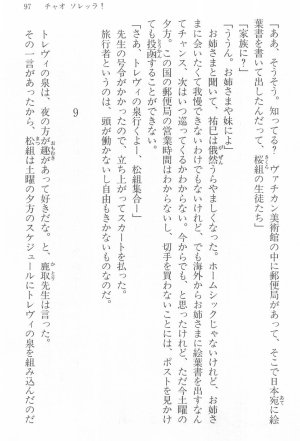 97 チャオ ソレッラ！
「ああ、そうそう。知ってる？ ヴァチカン美術館の中に郵便局があって、そこで日本宛に絵
葉書を書いて出したんだって、桜組の生徒たち」
「家族に？」
「ううん。お姉さまや妹によ」
お姉さまと聞いて、祐巳は俄然うらやましくなった。ホームシックじゃないけれど、お姉さ
まに会いたくて我慢できないわけでもないけれど、でも海外からお姉さまに絵葉書を出すなん
てチャンス、次はいつ巡ってくるかわからない。今からでも、と思ったけれど、ただ今土曜の
夕方。この国の郵便局の営業時間はわからないし、切手を買わないことには、ポストを見かけ
ても投函することができない。
「さあ、トレヴィの泉行くよー、松組集合ー」
先生の号令がかかったので、立ち上がってスカートを払った。
旅行者というのは、頭が働かないし自由もきかないものなのだ。
9
トレヴィの泉は、夜の方が趣があって好きだな、と、鹿取先生は言った。
その一言があったから、松組は土曜の夕方のスケジュールにトレヴィの泉を組み込んだのだ